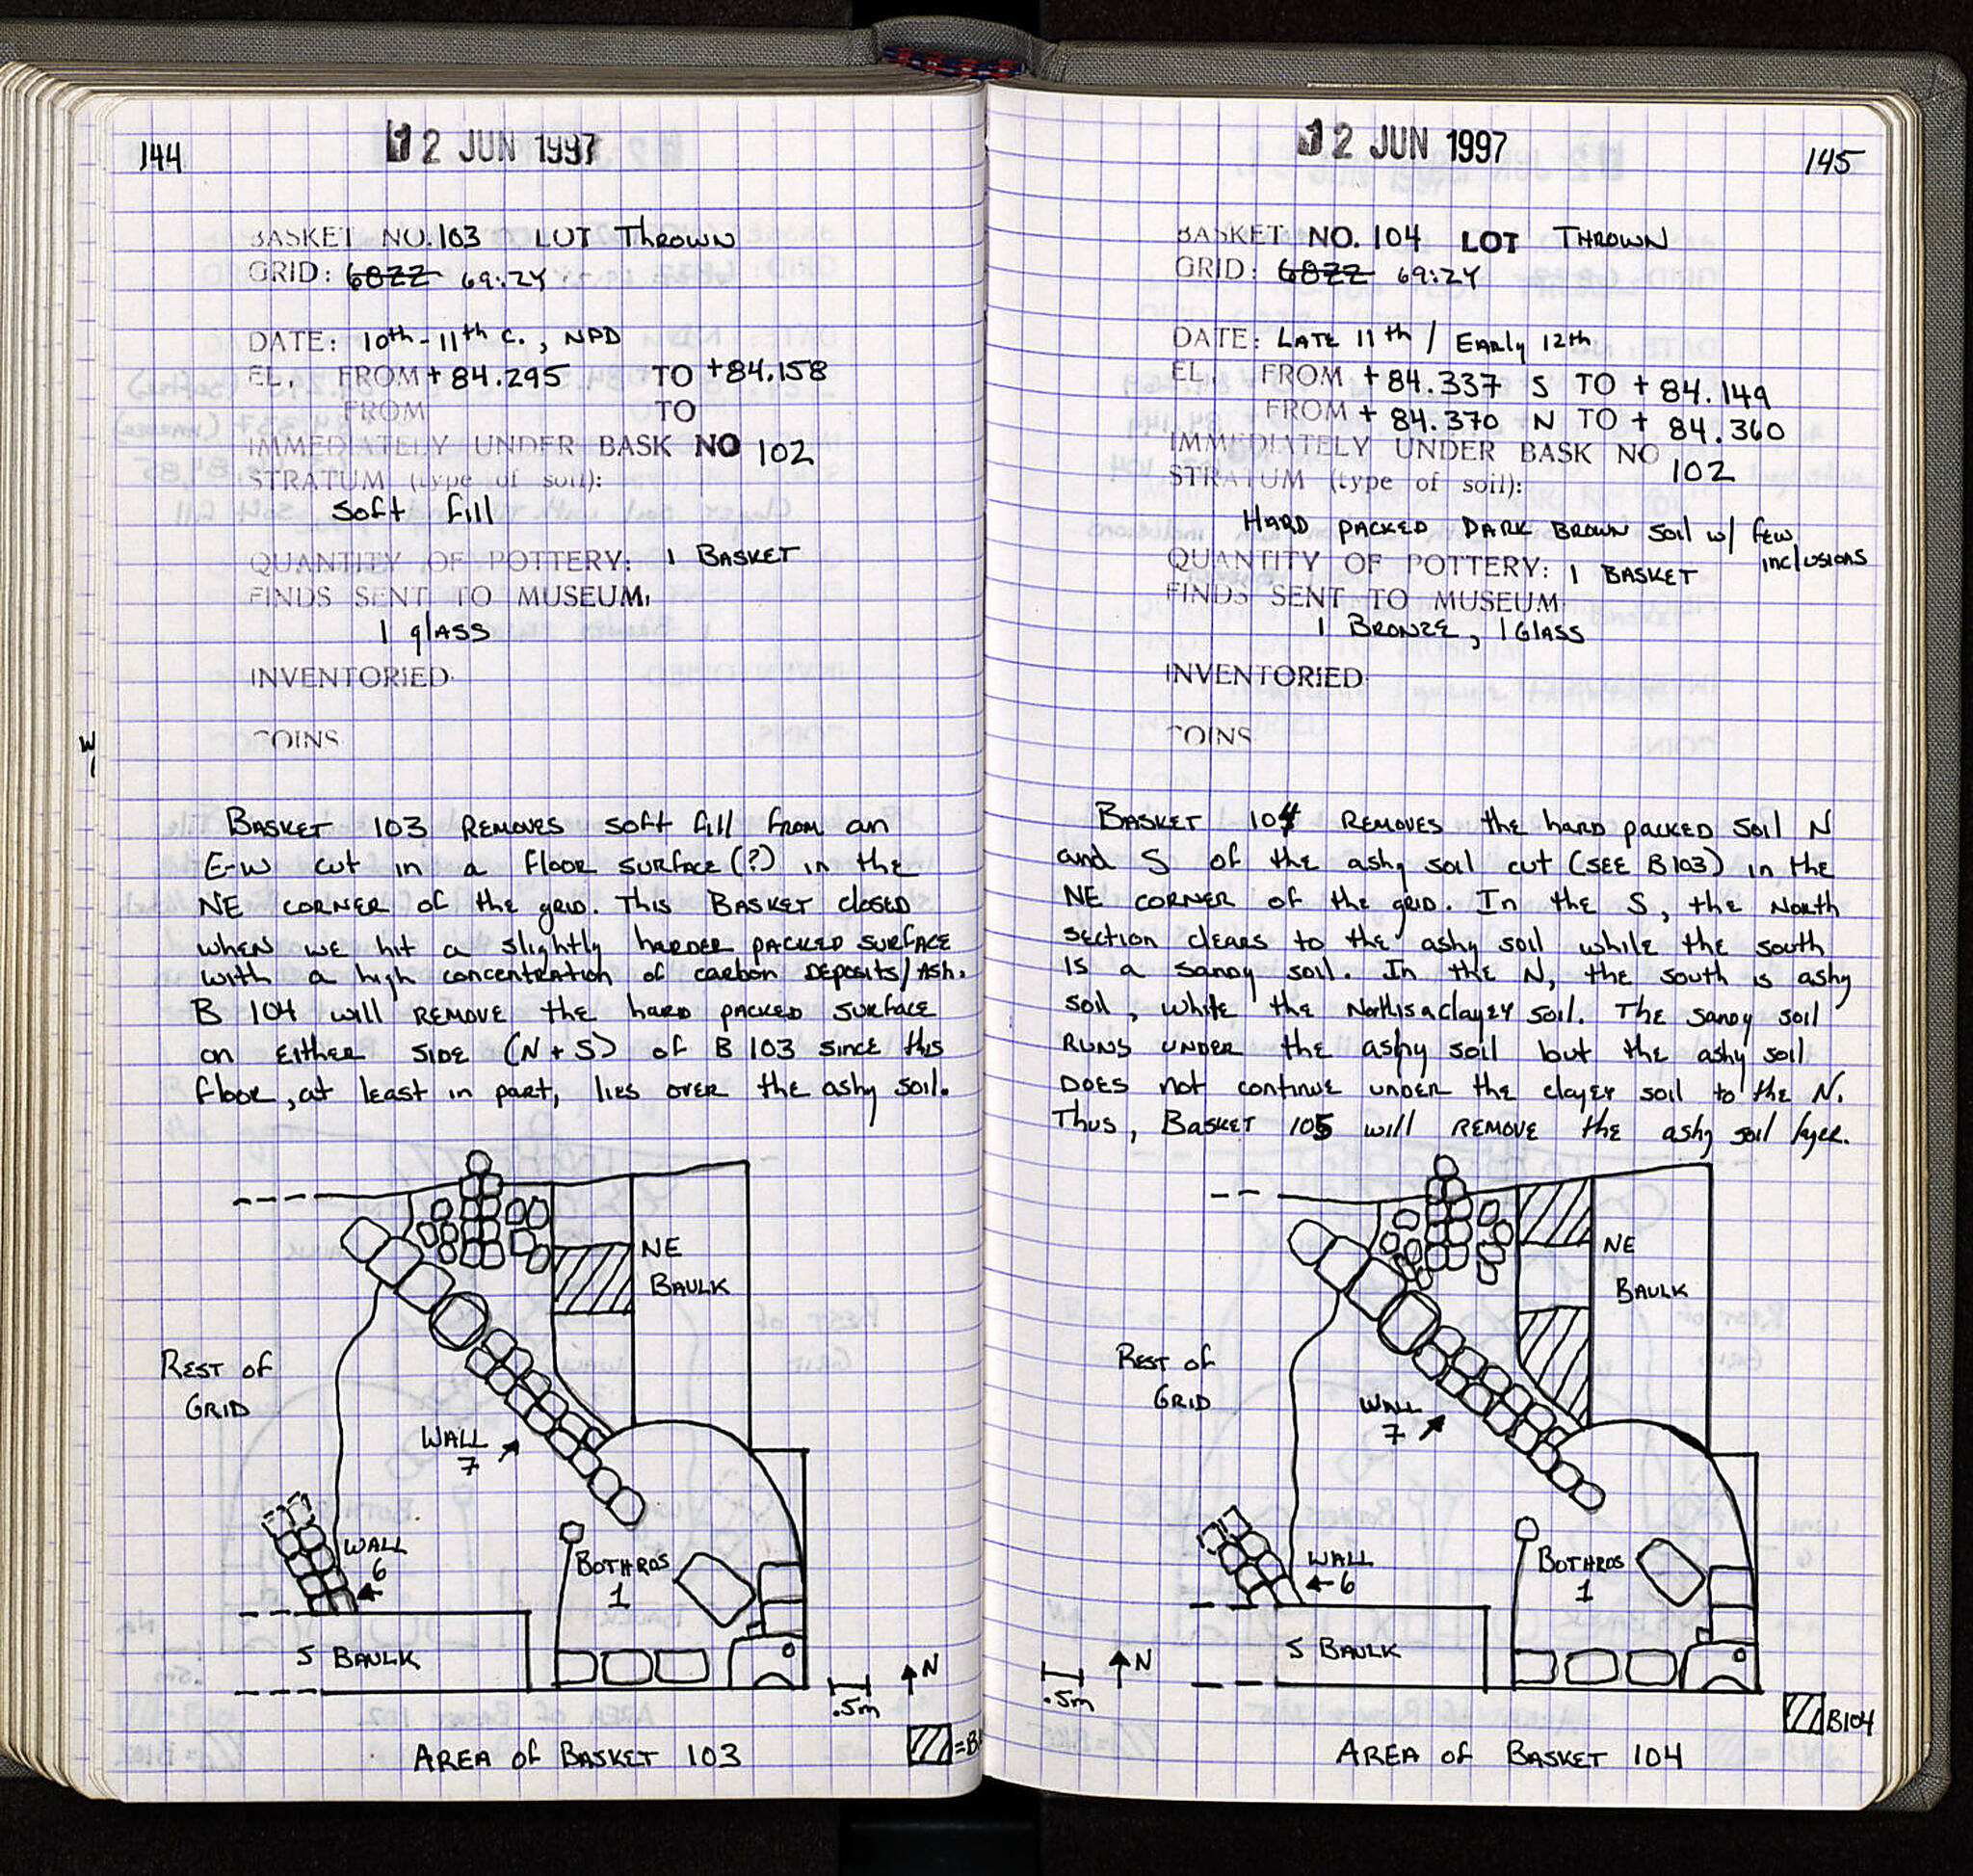 144
12 JUN 1997
BASKET NO. 103 LOT THROWN
GRID: 68ZZ 69:ZY
DATE: 10th-11th c., NPD
EL. FROM +84.295 TO +84.158
FROM TO
IMMEDIATELY UNDER BASK NO 102
STRATUM (type of soil):
Soft fill
QUANTITY OF POTTERY: 1 BASKET
FINDS SENT TO MUSEUM:
1 glASS
INVENTORIED
COINS
BASKET 103 REMOVES soft fill from an
E-W cut in a floor surface (?) in the
NE CORNER of the grid. This BASKET closed
when we hit a slightly harder packed surface
with a high concentration of carbon DEPOSITS/ASH.
B 104 will REMOVE the hard packed surface
on EITHER SIDE (N + S) of B 103 since this
floor, at least in part, lies over the ashy soil.
NE
BAULK
REST of
GRID
WALL
7
WALL
6
BOTHROS
1
S BAULK
.5m
N
AREA of BASKET 103
12 JUN 1997
145
BASKET NO. 104 LOT THROWN
GRID: 68ZZ 69:ZY
DATE: LATE 11th / Early 12th
EL. FROM +84.337 S TO +84.149
FROM +84.370 N TO +84.360
IMMEDIATELY UNDER BASK NO 102
STRATUM (type of soil):
HARD PACKED DARK BROWN soil w/ few
inclusions
QUANTITY OF POTTERY: 1 BASKET
FINDS SENT TO MUSEUM
1 BRONZE, 1 GlASS
INVENTORIED
COINS
BASKET 104 REMOVES the hard packed soil N
and S of the ashy soil cut (SEE B103) in the
NE CORNER of the grid. In the S, the North
section clears to the ashy soil while the south
is a sandy soil. In the N, the south is ashy
soil, while the North is a clayey soil. The sandy soil
RUNS UNDER the ashy soil but the ashy soil
DOES not continue under the clayey soil to the N.
Thus, BASKET 105 will REMOVE the ashy soil layer.
NE
BAULK
REST of
GRID
WALL
7
WALL
6
BOTHROS
1
S BAULK
.5m
N
B104
AREA of BASKET 104